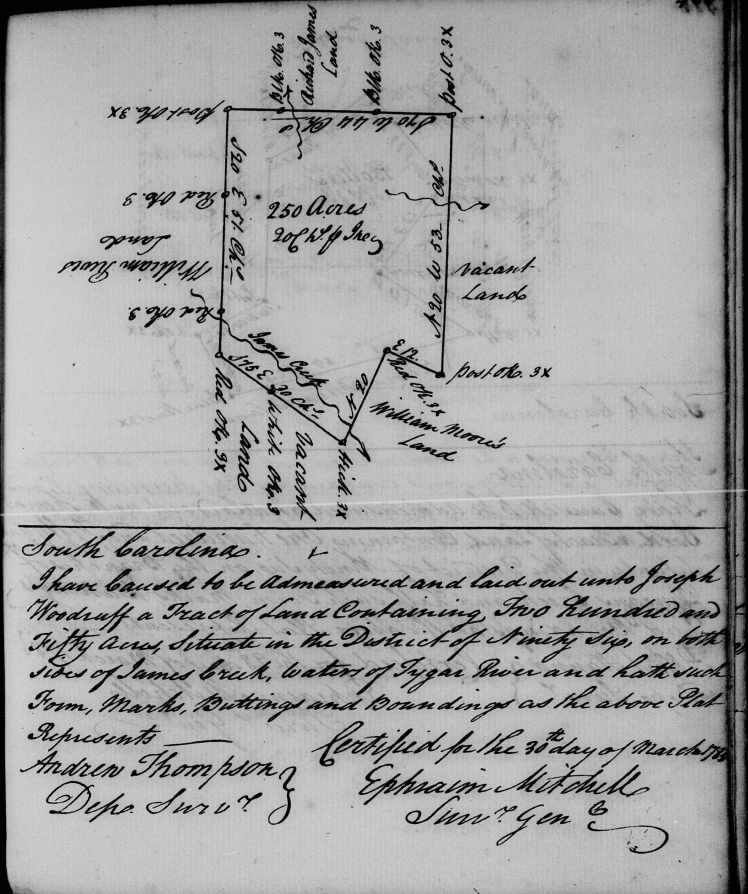 Post Ok. 3X
Blk. Ok. 3
Richard James
Land
Blk. Ok. 3
Post O. 3X
S 70 W 44 Ch
S 20 E 51 Chs
Red Ok. 3
William
Land
Red Ok. 3.
250 Acres
N 20 W 53 Chs
Vacant
Land
Post Ok. 3X
Red Ok. 3X
N 20
William Moore's
Land
James Creek
E 30 Chs
Red Ok. 3X
Whit. Ok. 3
Vacant
Land
Hick. 3X
South Carolina.
I have Caused to be Admeasured and laid out unto Joseph
Woodruff a Tract of Land Containing Two Hundred and
Fifty Acres, Situate in the District of Ninety Six, on both
sides of James Creek, waters of Tygar River and hath such
Form, Marks, Buttings and Boundings as the above Plat
Represents
Certified for the 30th day of March
Andrew Thompson
Dep. Survr.
Ephraim Mitchell
Survr. Genl.